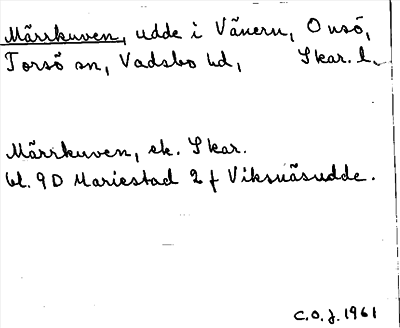 Märrkuven, udde i Vänern, Onsö,
Torsö sn, Vadsbo hd, Skar. l.
Märrkuven, ek. Skar.
bl. 9D Mariestad 2 f Viksnäsudde.
C.O.J. 1961